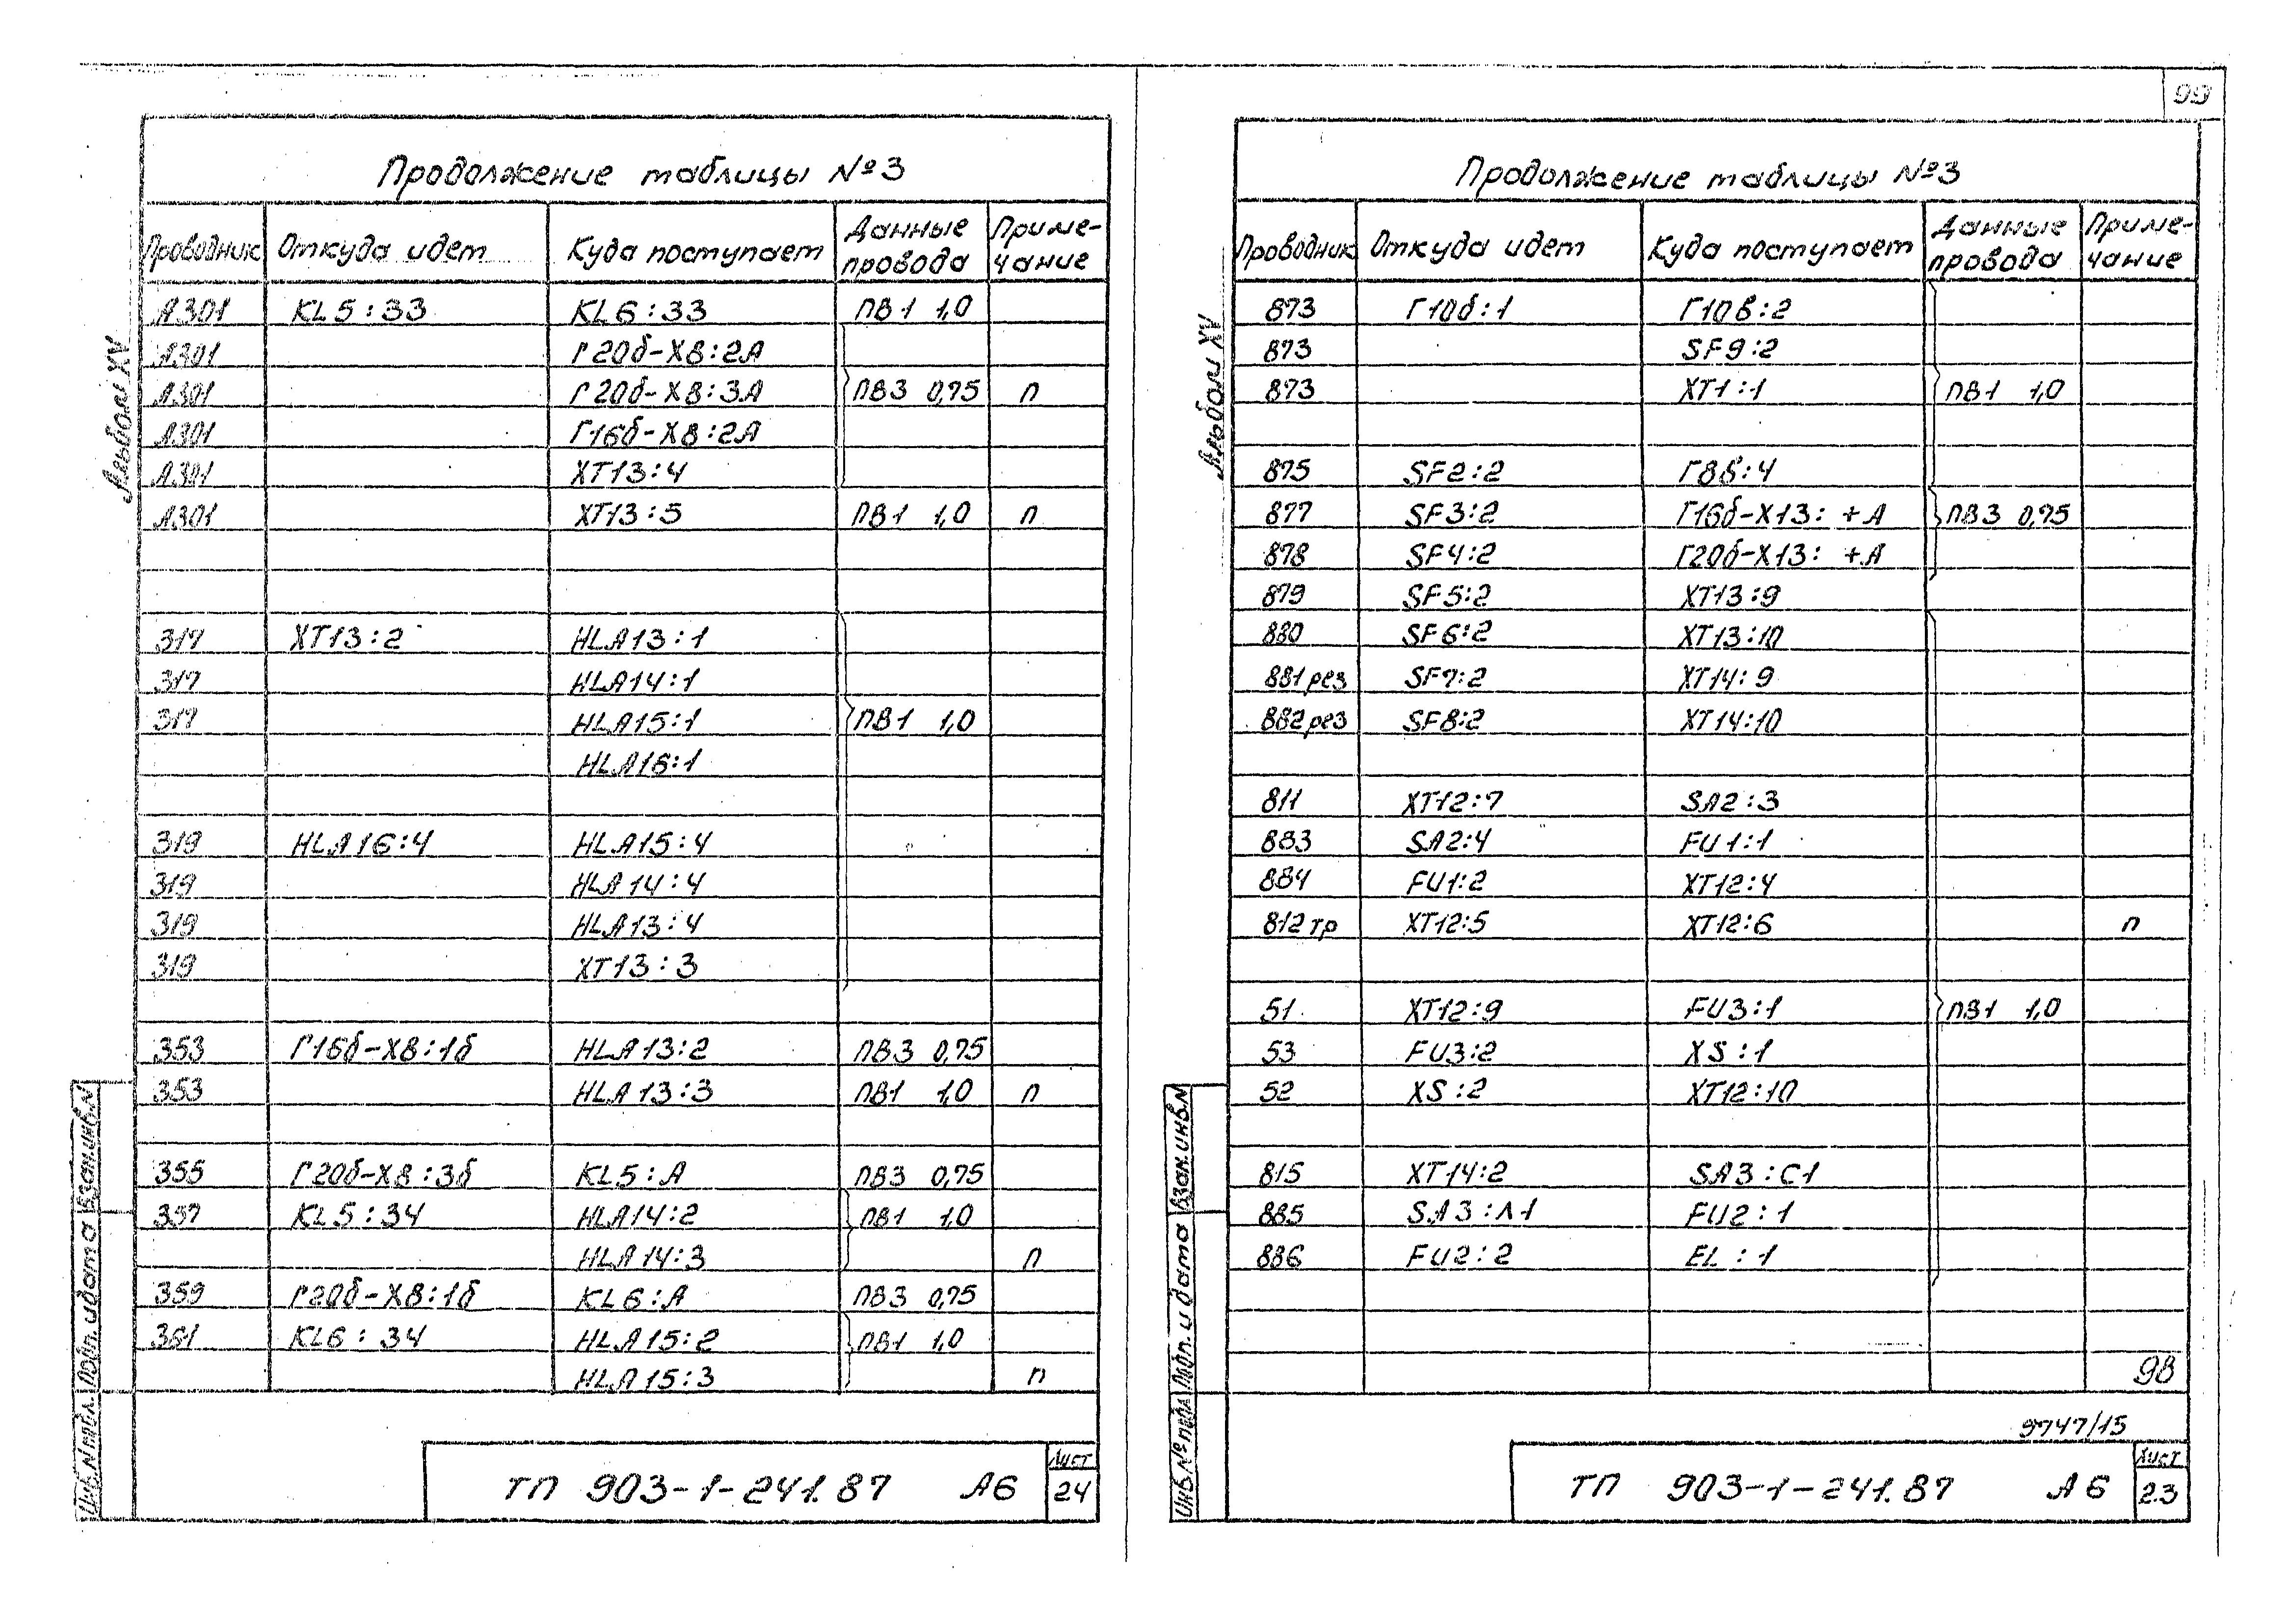 99
Продолжение таблицы №3
Проводник Откуда идет Куда поступает Данные провода Примечание
А301 KL5:33 KL6:33 ПВ1 1,0
А301 Г20б-Х8:2А
А301 Г20б-Х8:3А ПВ3 0,75 п
А301 Г16б-Х8:2А
А301 ХТ13:4
А301 ХТ13:5 ПВ1 1,0 п
317 ХТ13:2 HLA13:1
317 HLA14:1
317 HLA15:1 ПВ1 1,0
HLA16:1
319 HLA16:4 HLA15:4
319 HLA14:4
319 HLA13:4
319 ХТ13:3
353 Г16б-Х8:1б HLA13:2 ПВ3 0,75
353 HLA13:3 ПВ1 1,0 п
355 Г20б-Х8:3б KL5:А ПВ3 0,75
357 KL5:34 HLA14:2 ПВ1 1,0
HLA14:3 п
359 Г20б-Х8:1б KL6:А ПВ3 0,75
361 KL6:34 HLA15:2 ПВ1 1,0
HLA15:3 п
Альбом XV
Инв.N подл. Подп. и дата Взам.инв.N
ТП 903-1-241.87 А6
Лист
24
Продолжение таблицы №3
Проводник Откуда идет Куда поступает Данные провода Примечание
873 Г10б:1 Г10в:2
873 SF9:2
873 ХТ1:1 ПВ1 1,0
875 SF2:2 Г8в:4
877 SF3:2 Г16б-Х13: +А ПВ3 0,75
878 SF4:2 Г20б-Х13: +А
879 SF5:2 ХТ13:9
880 SF6:2 ХТ13:10
881 рез SF7:2 ХТ14:9
882 рез SF8:2 ХТ14:10
811 ХТ12:7 SA2:3
883 SA2:4 FU1:1
884 FU1:2 ХТ12:4
812 тр ХТ12:5 ХТ12:6 п
51 ХТ12:9 FU3:1 ПВ1 1,0
53 FU3:2 XS:1
52 XS:2 ХТ12:10
815 ХТ14:2 SA3:С1
885 SA3:Л1 FU2:1
886 FU2:2 EL:1
98
Альбом XV
Инв.№ подл. Подп. и дата Взам.инв.N
9747/15
ТП 903-1-241.87 А6
Лист
23